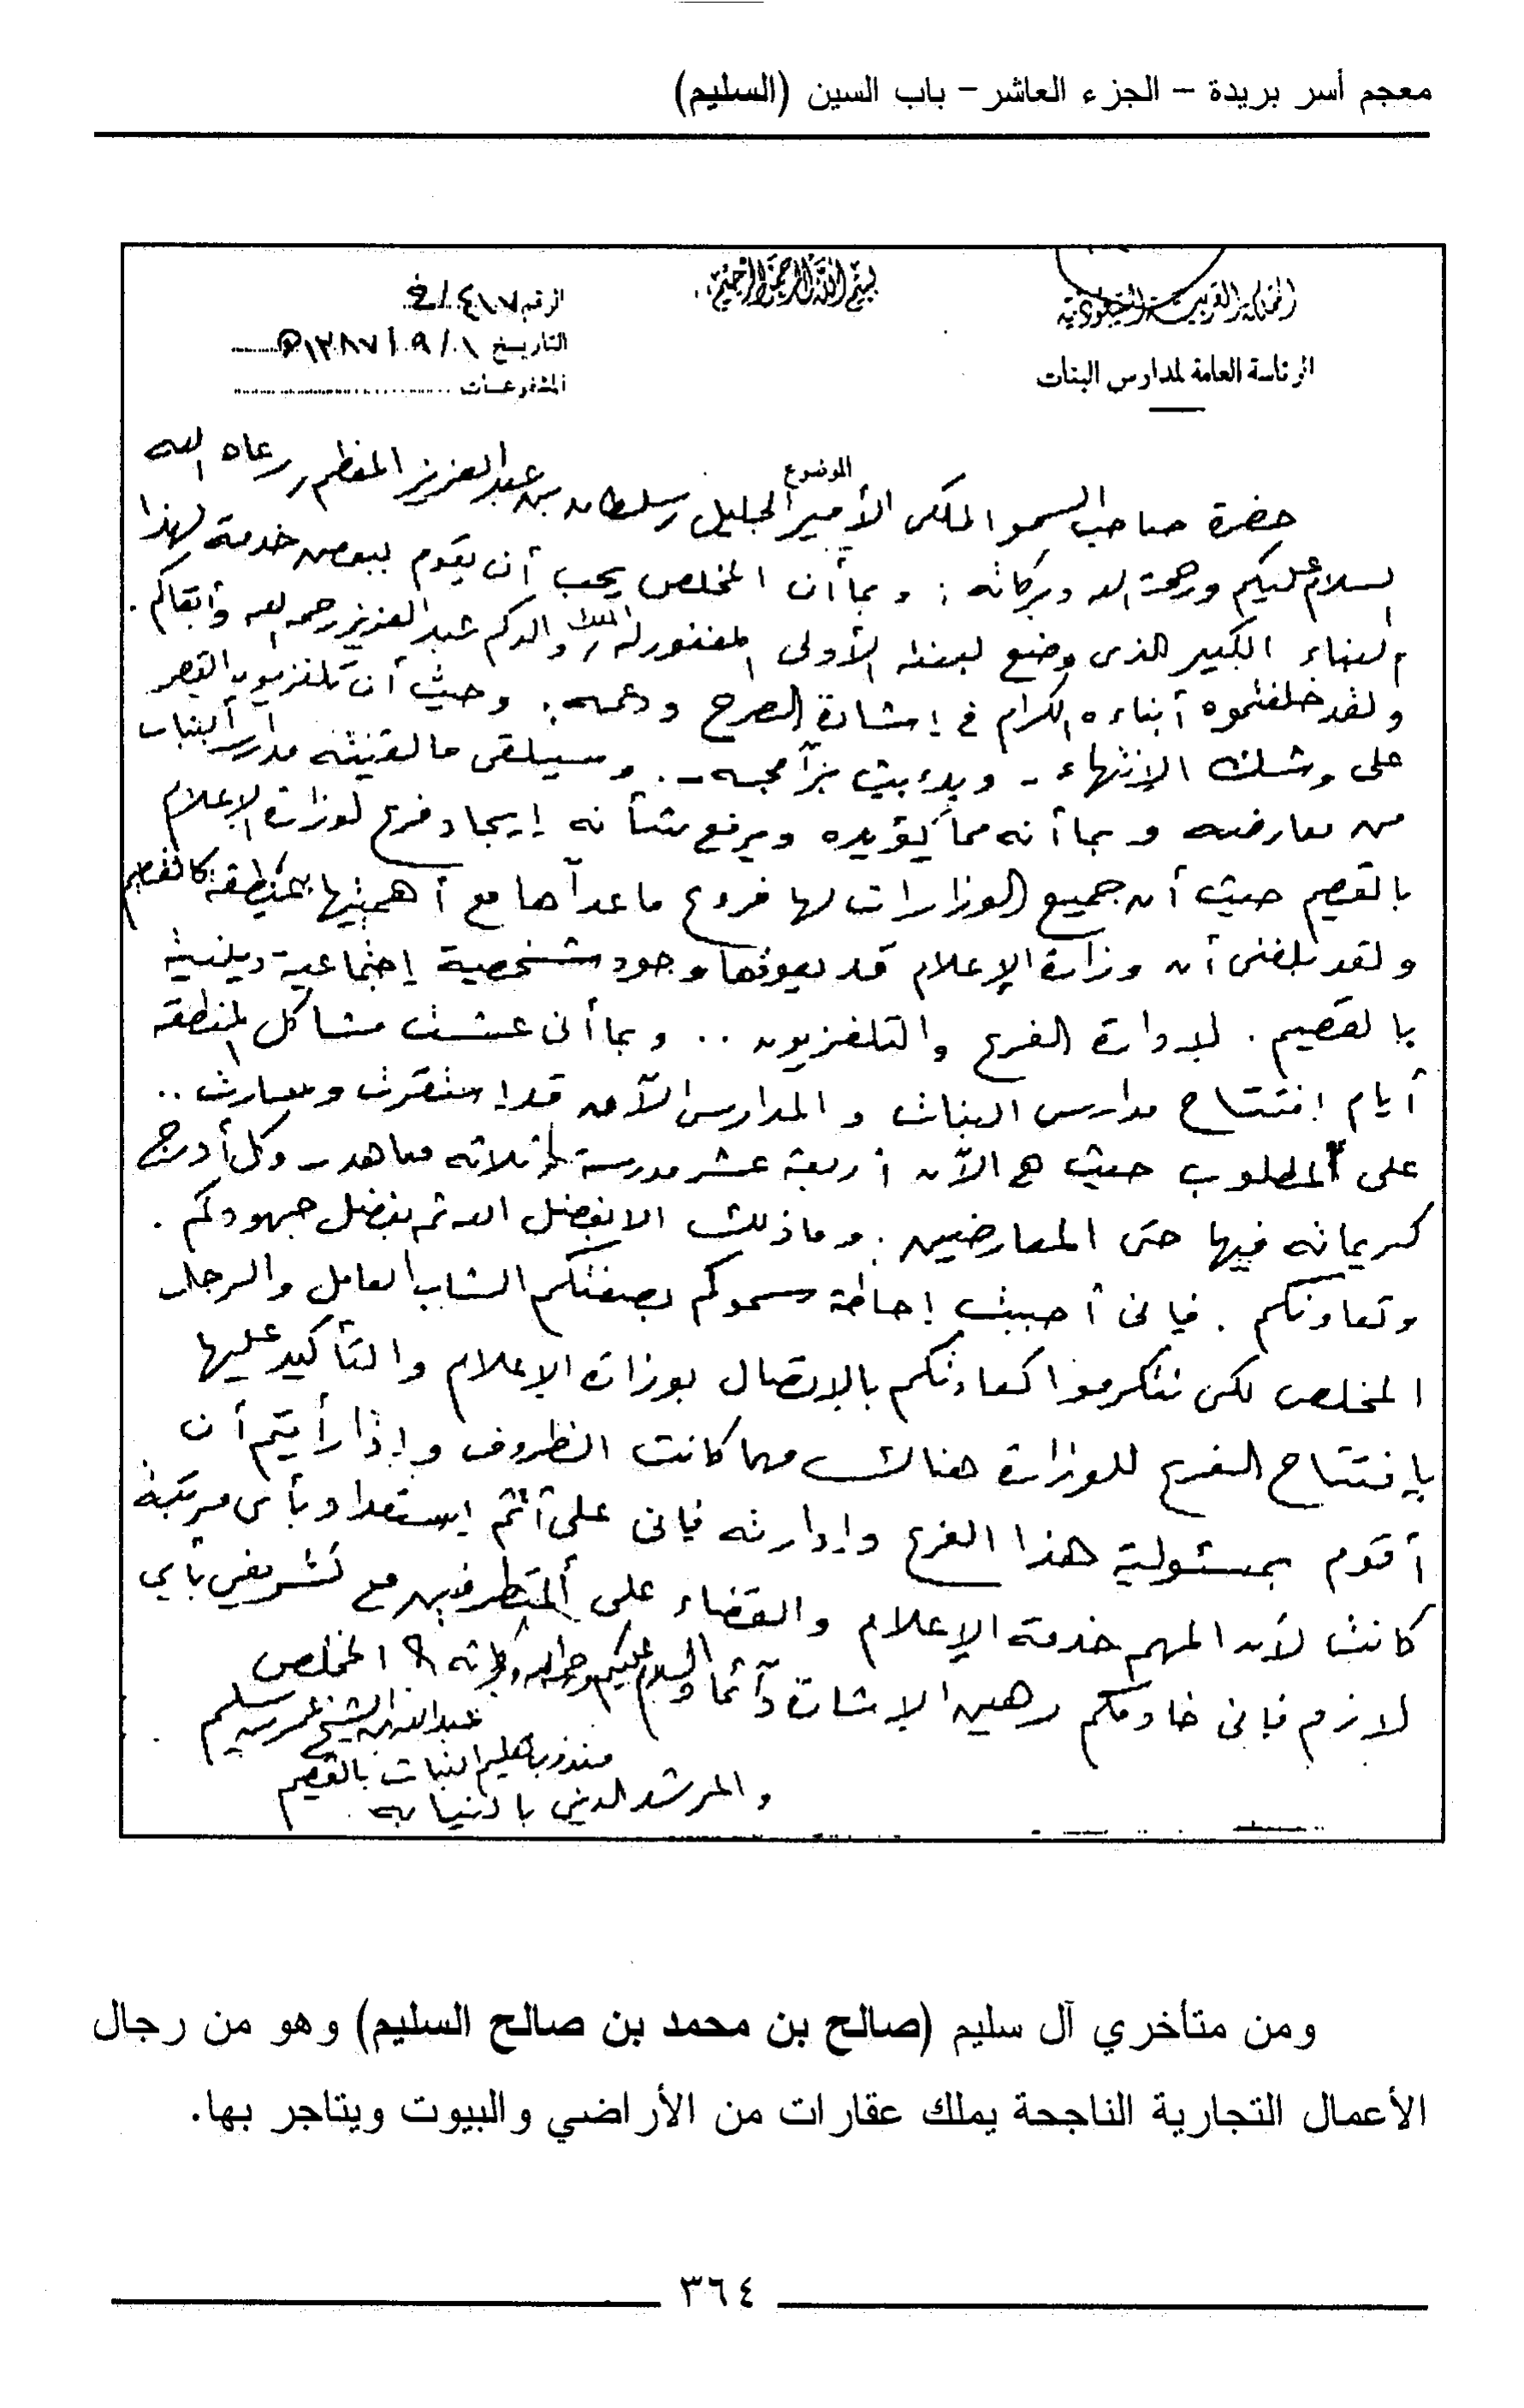 معجم أسر بريدة – الجزء العاشر – باب السين (السليم)
المملكة العربية السعودية
الرئاسة العامة لمدارس البنات
بسم الله الرحمن الرحيم
الرقم ٤١٧/خ
التاريخ ١/٩/١٣٨٧هـ
المشفوعات
الموضوع
حضرة صاحب السمو الملكي الأمير الجليل سلطان بن عبدالعزيز المعظم رعاه الله
السلام عليكم ورحمة الله وبركاته: وبما أن المخلص يحب أن يقوم ببعض خدمة لهذا
البناء الكبير الذي وضع لبنته الأولى المغفور له الملك والدكم عبدالعزيز رحمه الله وأبقاكم.
ولقد خلفتموه أبناءه الكرام في إشادة الصرح ودعمه. وحيث أن تلفزيون القصيم
على وشك الإنتهاء - وبدء بث برآمجه -. وسيلقى ما لقيته مدارس البنات
من معارضه وبما أنه مما يؤيده ويرفع شأنه إيجاد فرع لوزارة الإعلام
بالقصيم حيث أن جميع الوزارات لها فروع ماعدآها مع أهميتها بمنطقة كالقصيم
ولقد بلغني أن وزارة الإعلام قد يعوزها وجود شخصية إجتماعية دينية
بالقصيم. لإدارة الفرع والتلفزيون .. وبما أني عشت مشاكل المنطقة
أيام إفتتاح مدارس البنات والمدارس الآن قد استقرت وسارت ..
على المطلوب حيث هي الآن أربعة عشر مدرسة وثلاثه معاهد - وكل أدرج
كريماته فيها حتى المعارضين. وماذلك الا بفضل الله ثم بفضل جهودكم.
وتعاونكم. فإني أحببت إحاطة سموكم بصفتكم الشاب العامل والرجل
المخلص لكي تتكرموا كعادتكم بالإتصال بوزارة الإعلام والتأكيد عليها
بإفتتاح الفرع للوزارة هناك مهما كانت الظروف وإذا رأيتم أن
أقوم بمسئولية هذا الفرع وإدارته فإني على أتم إستعداد بأي مرتبة
كانت لأن المهم خدمة الإعلام والقضاء على المتطرفين مع تشريفي بأي
لازم فإني خادمكم رهين الإشارة دآئما والسلام عليكم ورحمة الله وبركاته؟ المخلص
عبدالله بن الشيخ عمر بن سليم
مندوب تعليم البنات بالقصيم
والمرشد الديني بالنيابه
ومن متأخري آل سليم (صالح بن محمد بن صالح السليم) وهو من رجال
الأعمال التجارية الناجحة يملك عقارات من الأراضي والبيوت ويتاجر بها.
٣٦٤